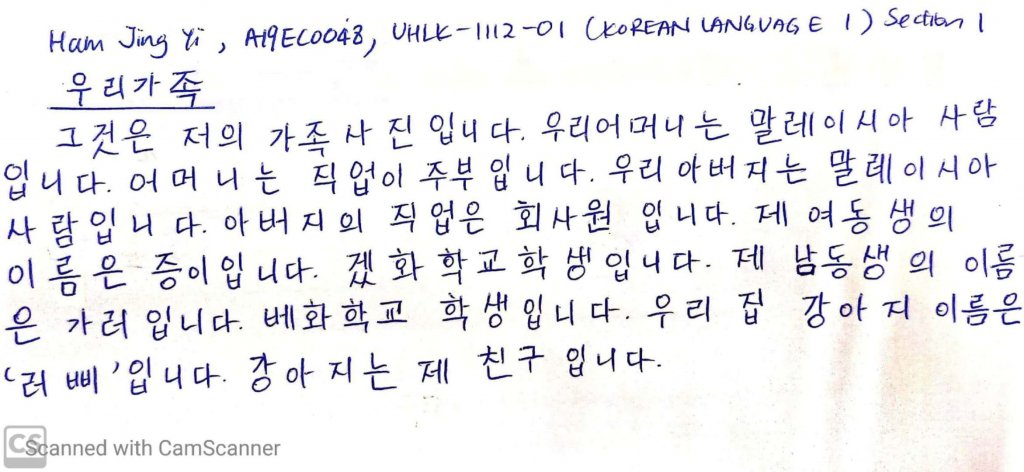 Ham Jing Yi, A19EC0048, UHLK-1112-01 (KOREAN LANGUAGE 1) Section 1
우리가족
그것은 저의 가족사진입니다. 우리어머니는 말레이시아 사람
입니다. 어머니는 직업이 주부입니다. 우리 아버지는 말레이시아
사람입니다. 아버지의 직업은 회사원 입니다. 제 여동생의
이름은 증이입니다. 겠화학교학생입니다. 제 남동생의 이름
은 가러입니다. 베화학교 학생입니다. 우리 집 강아지 이름은
'러삐'입니다. 강아지는 제 친구입니다.
CS Scanned with CamScanner